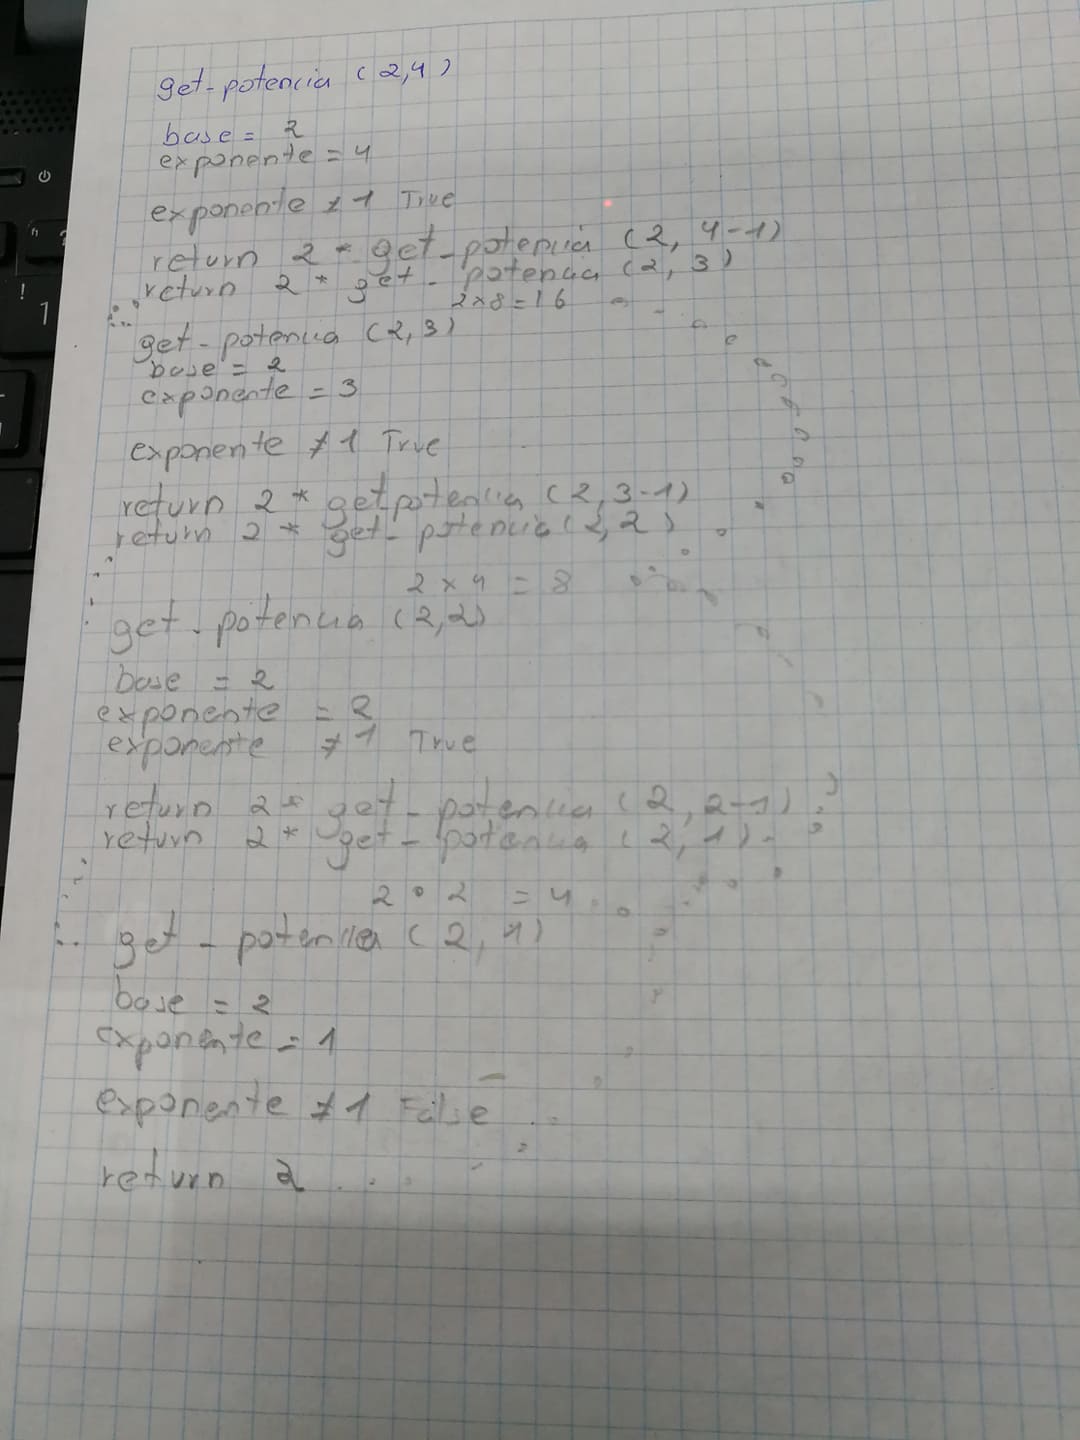 get-potencia (2,4)
base = 2
exponente = 4
exponente ≠ 1 True
return 2 * get-potencia (2, 4-1)
return 2 * get-potencia (2, 3)
2x8=16
get-potencia (2,3)
base = 2
exponente = 3
exponente ≠ 1 True
return 2 * getpotencia (2, 3-1)
return 2 * get-potencia (2,2)
2 x 4 = 8
get-potencia (2,2)
base = 2
exponente = 2
exponente ≠ 1 True
return 2 * get-potencia (2, 2-1)
return 2 * get-potencia (2, 1)
2 • 2 = 4
get-potencia (2, 1)
base = 2
exponente = 1
exponente ≠ 1 False
return 2